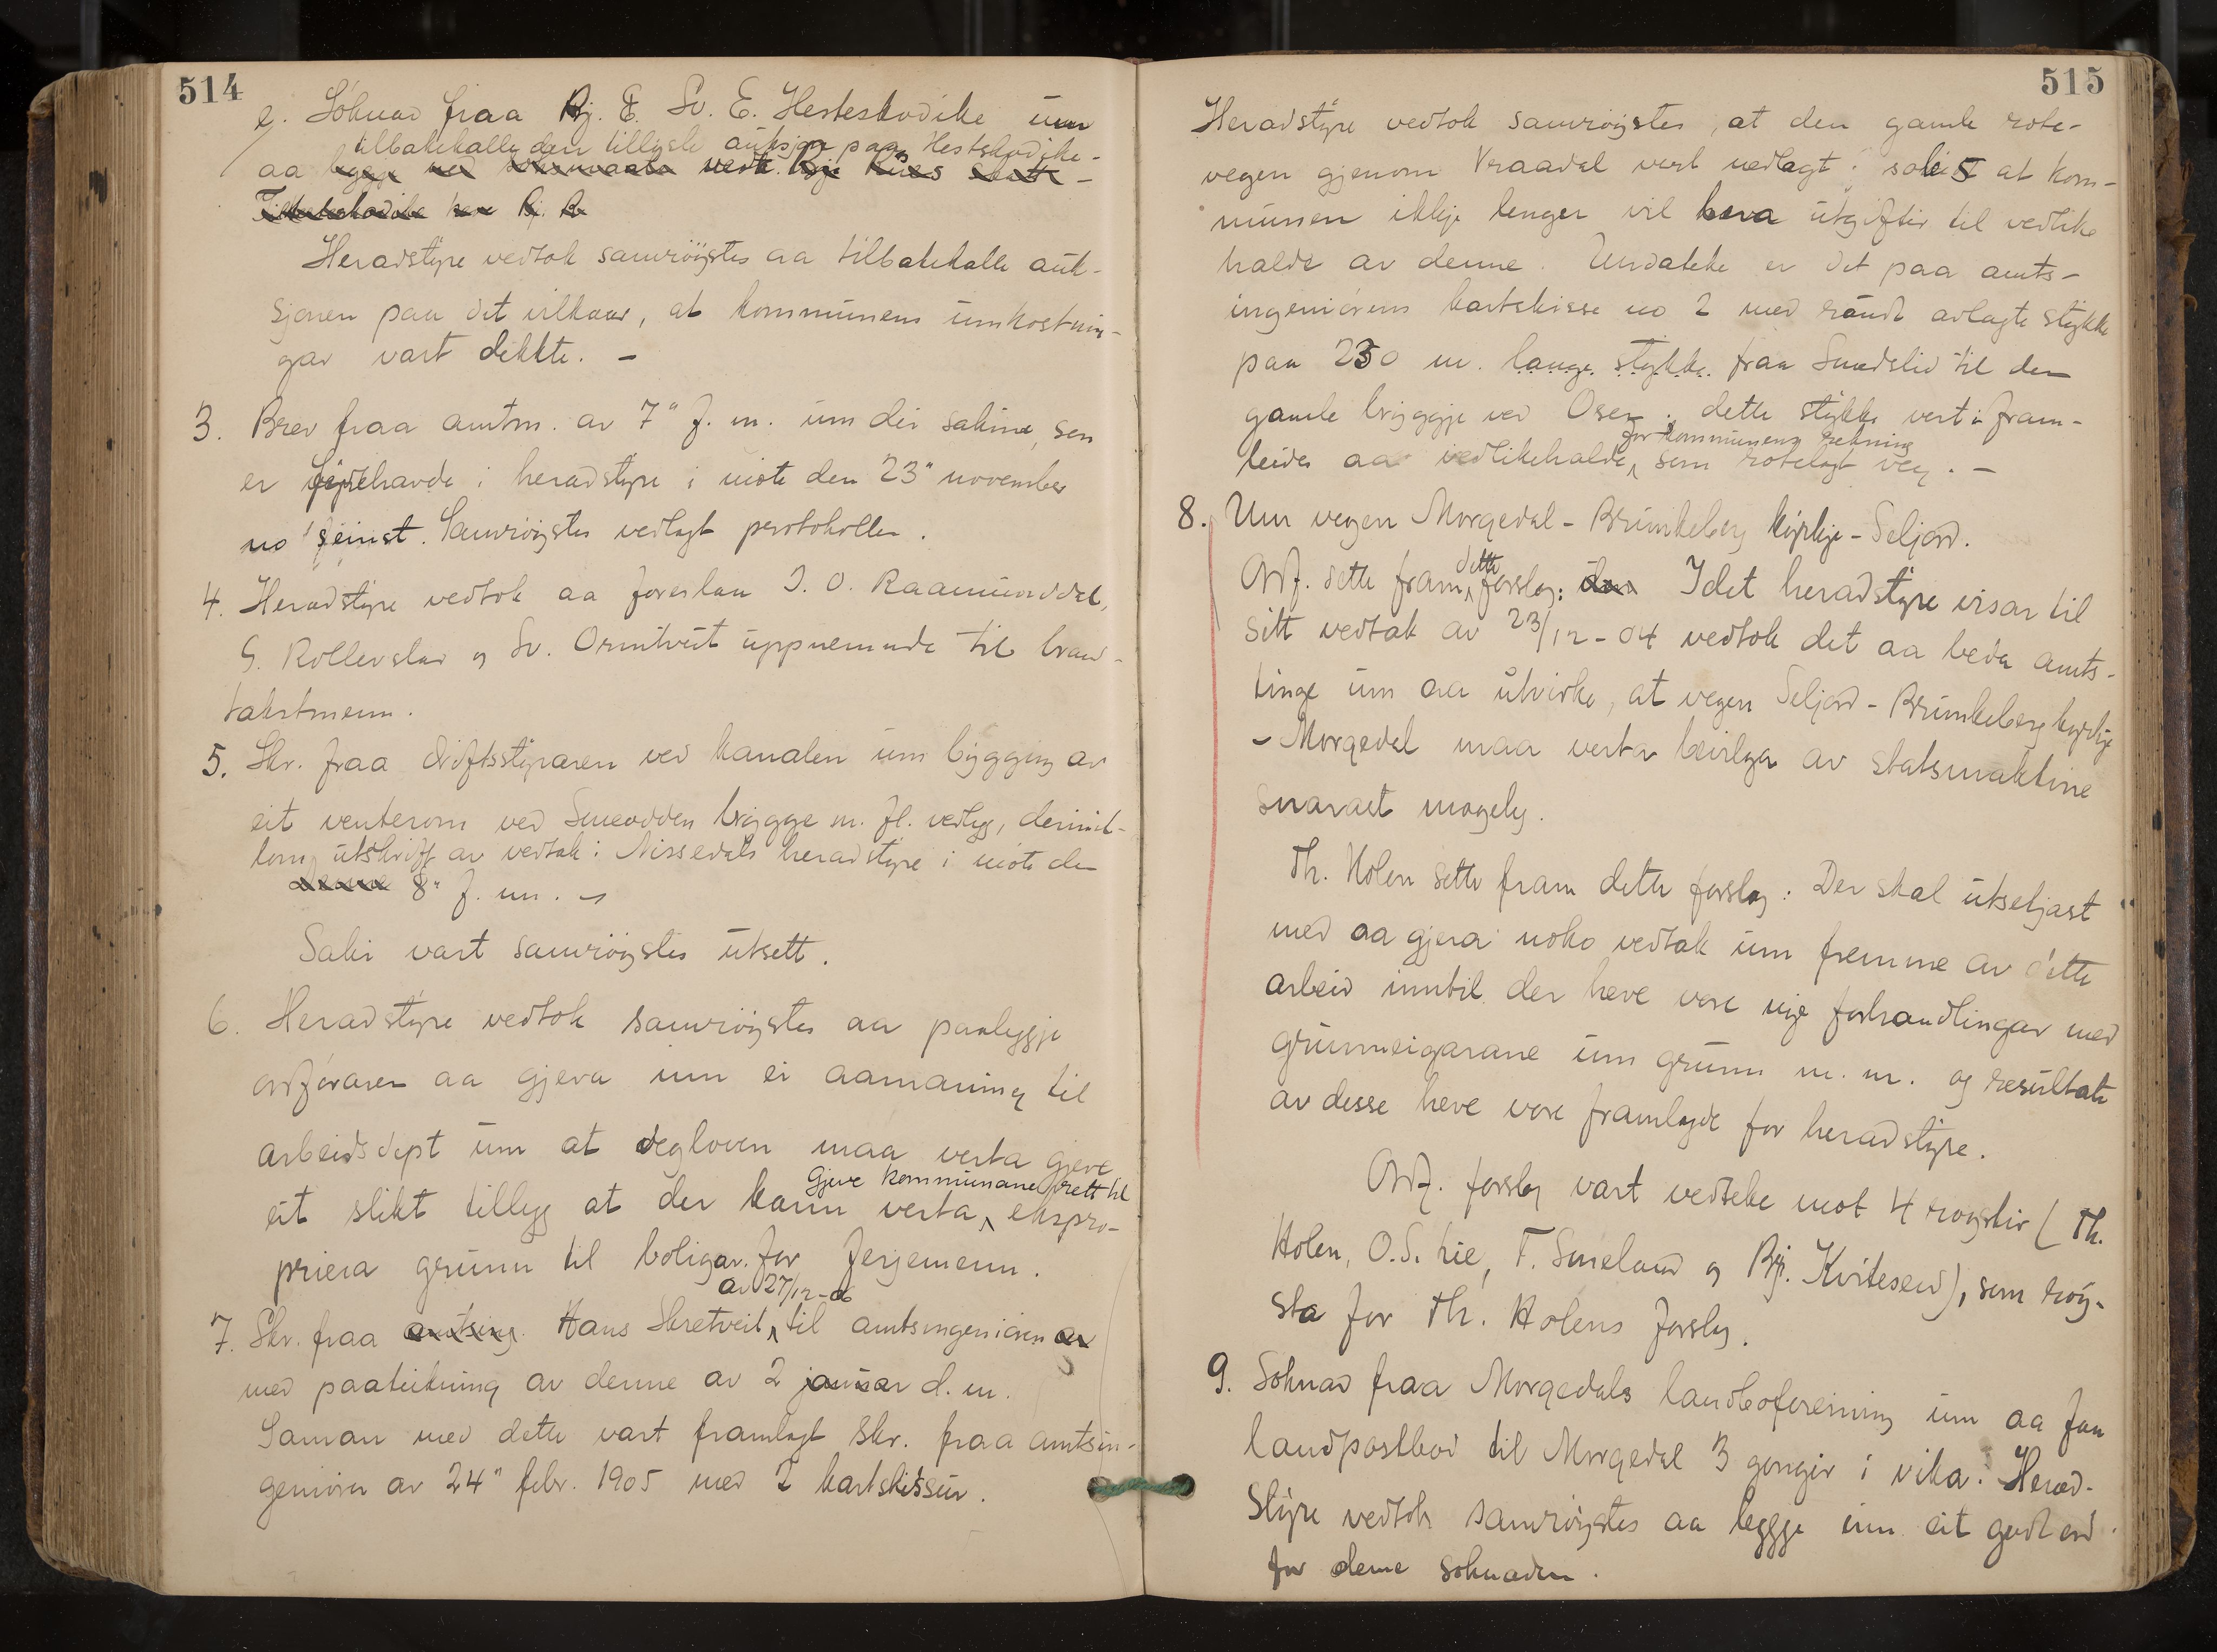 514
e. Söknad fraa Bj. E. Sv. E. Hesteskodike um
tilbakekalle den tillyste auksjon paa Hestskodike-
aa
Heradstyre vedtok samröystes aa tilbakekalle auk-
sjonen paa det vilkaar, at kommunens umkostnin-
gar vart dekkte. –
3. Brev fraa amtm. av 7" f. m. um dei sakine, sem
er fyrehavde i heradstyre i möte den 23" november
no seinst. Samröystes vedlagt protokollen.
4. Heradstyre vedtok aa foreslaa J. O. Raamunddal,
G. Rollevstad og Sv. Ormtveit uppnemnde til brand-
takstmenn.
5. Skr. fraa driftsstyraren ved kanalen um bygging av
eit venterom ved Smeodden brygge m. fl. vedlegg, derimil-
lom utskrift av vedtak i Nissedals heradstyre i möte den
8" f. m. –
Saki vart samröystes utsett.
6. Heradstyre vedtok samröystes aa paaleggje
ordföraren aa gjeva inn ei aamaning til
arbeidsdept um at vegloven maa verta gjeve
gjeve kommunane rett til
eit slikt tillegg at der kann verta ekspro-
priera grunn til boligar for ferjemenn.
av 27/12-06
7. Skr. fraa amtsing. Hans Skretveit til amtsingeniören av
med paateikning av denne av 2 januar d. m.
Saman med dette vart framlagt skr. fraa amtsin-
geniören av 24" febr. 1905 med 2 kartskissur.
515
Heradstyre vedtok samröystes, at den gamle rote-
vegen gjenom Vraadal vert nedlagt; soleis at kom-
munen ikkje lenger vil hava utgiftir til vedlike
halde av denne. Undateke er det paa amts-
ingeniörens kartskisse no 2 med raudt avlagte stykke
paa 230 m. lange stykke fraa Smedslid til den
gamle bryggje ved Osen; dette stykke vert i fram-
for kommunens rekning
leides aa vedlikehalde som rotelagt veg. –
8. Um vegen Morgedal – Brunkeberg kyrkje – Seljord.
dette
Ordf. sette fram forslag: den Idet heradstyre visar til
sitt vedtak av 23/12-04 vedtok det aa beda amts-
tinge um aa utvirke, at vegen Seljord – Brunkeberg kyrkje
– Morgedal maa verta bevilga av statsmaktine
snarast mogeleg.
Th. Holen sette fram dette forslag: Der skal utsetjast
med aa gjera noko vedtak um fremme av dette
arbeid inntil der heve vore nye forhandlingar med
grunneigarane um grunn m. m. og resultate
av desse heve vore framlagde for heradstyre.
Ordf. forslag vart vedteke mot 4 röystir (Th.
Holen, O. S. Lie, F. Smeland og Bj. Kviteseid), som röy-
sta for Th. Holens forslag.
9. Söknad fraa Morgedals landboforeining um aa faa
landpostbod til Morgedal 3 gongir i vika. Herad-
styre vedtok samröystes aa leggje inn eit godt ord
for denne söknaden.